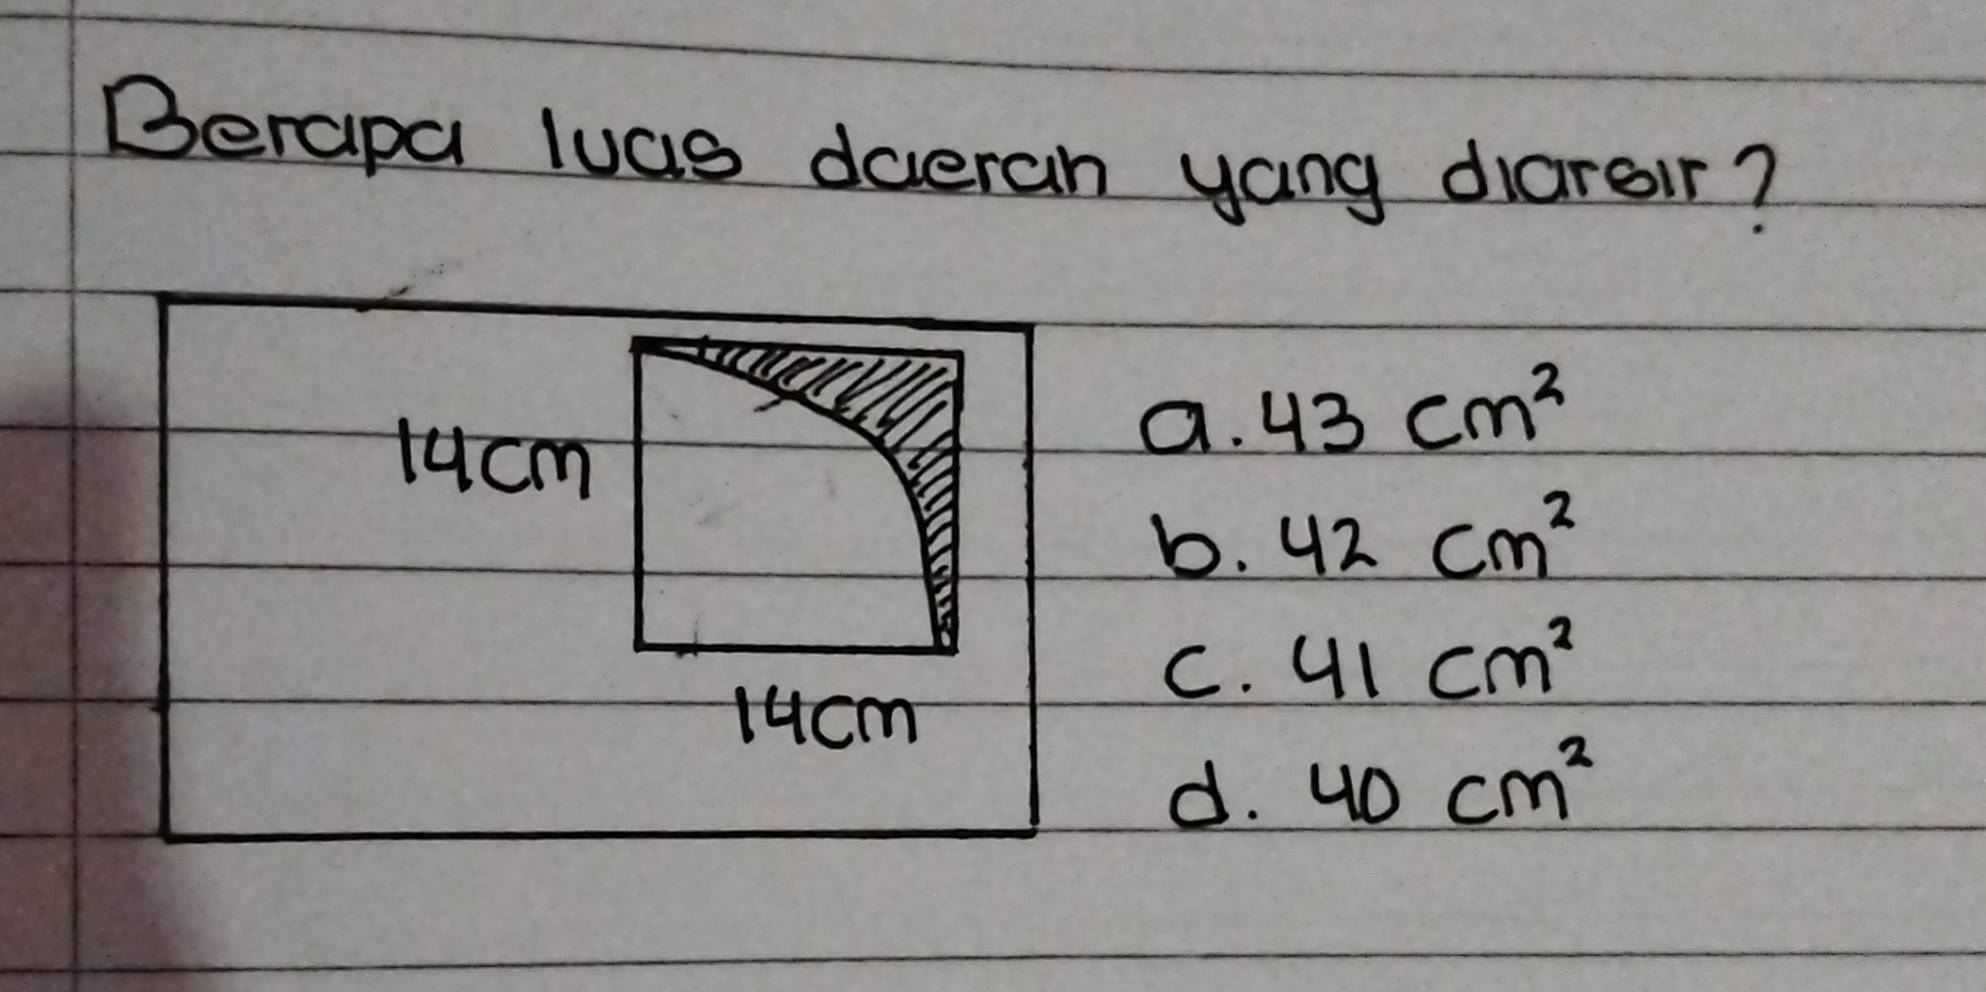 Berapa luas daerah yang diarsir?
14cm
14cm
a. 43 cm²
b. 42 cm²
c. 41 cm²
d. 40 cm²